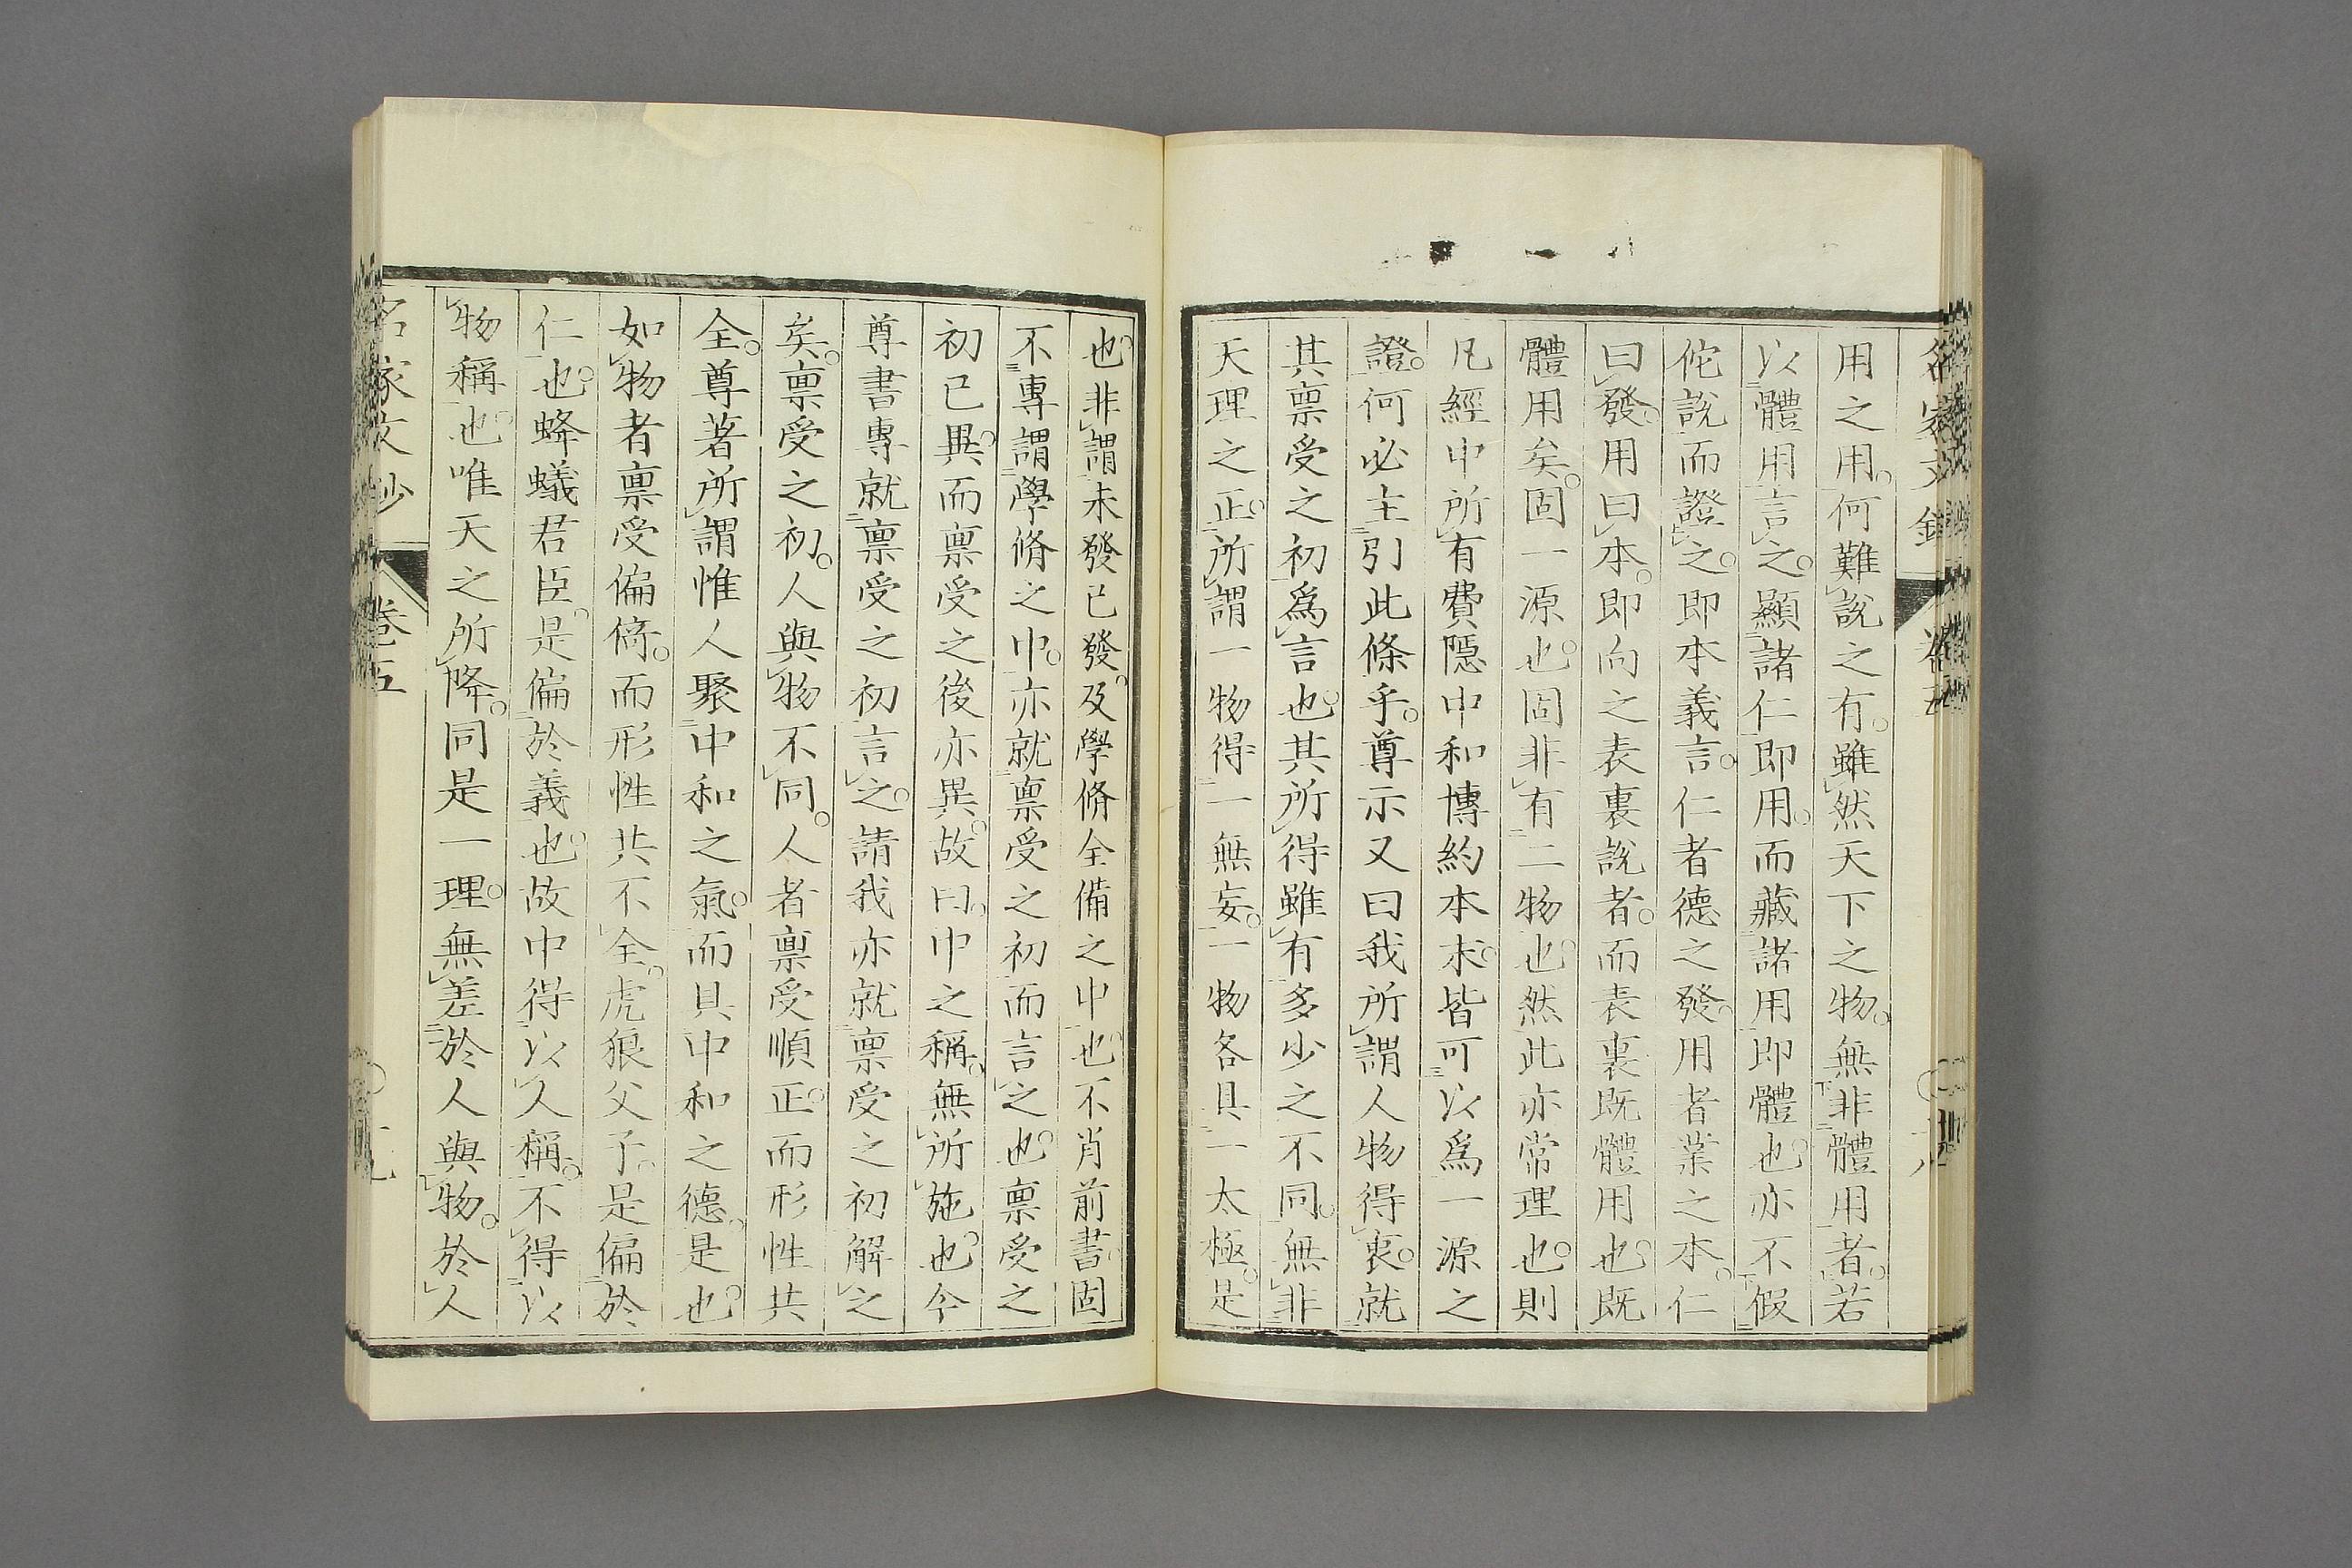 用之用。何難說之有。雖然天下之物。無非體用者。若
以體用言之。顯諸仁即用。而藏諸用即體也。亦不假
佗說而證之。即本義言。仁者德之發。用者業之本。仁
曰發。用曰本。即向之表裏說者。而表裏既體用也。既
體用矣。固一源也。固非有二物也。然此亦常理也。則
凡經中所有費隱中和博約本末。皆可以爲一源之
證。何必主引此條乎。尊示又曰我所謂人物得衷。就
其禀受之初爲言也。其所得雖有多少之不同。無非
天理之正。所謂一物得一無妄。一物各具一太極。是
也。非謂未發已發。及學脩全備之中也。不肖前書。固
不專謂學脩之中。亦就禀受之初而言之也。禀受之
初已異。而禀受之後亦異。故曰。中之稱。無所施也。今
尊書專就禀受之初言之。請我亦就禀受之初解之
矣。禀受之初。人與物不同。人者禀受順正。而形性共
全。尊著所謂惟人聚中和之氣。而具中和之德。是也。
如物者禀受偏倚。而形性共不全。虎狼父子。是偏於
仁也。蜂蟻君臣。是偏於義也。故中得以人稱。不得以
物稱也。唯天之所降。同是一理。無差於人與物。於人
名家文抄 卷五